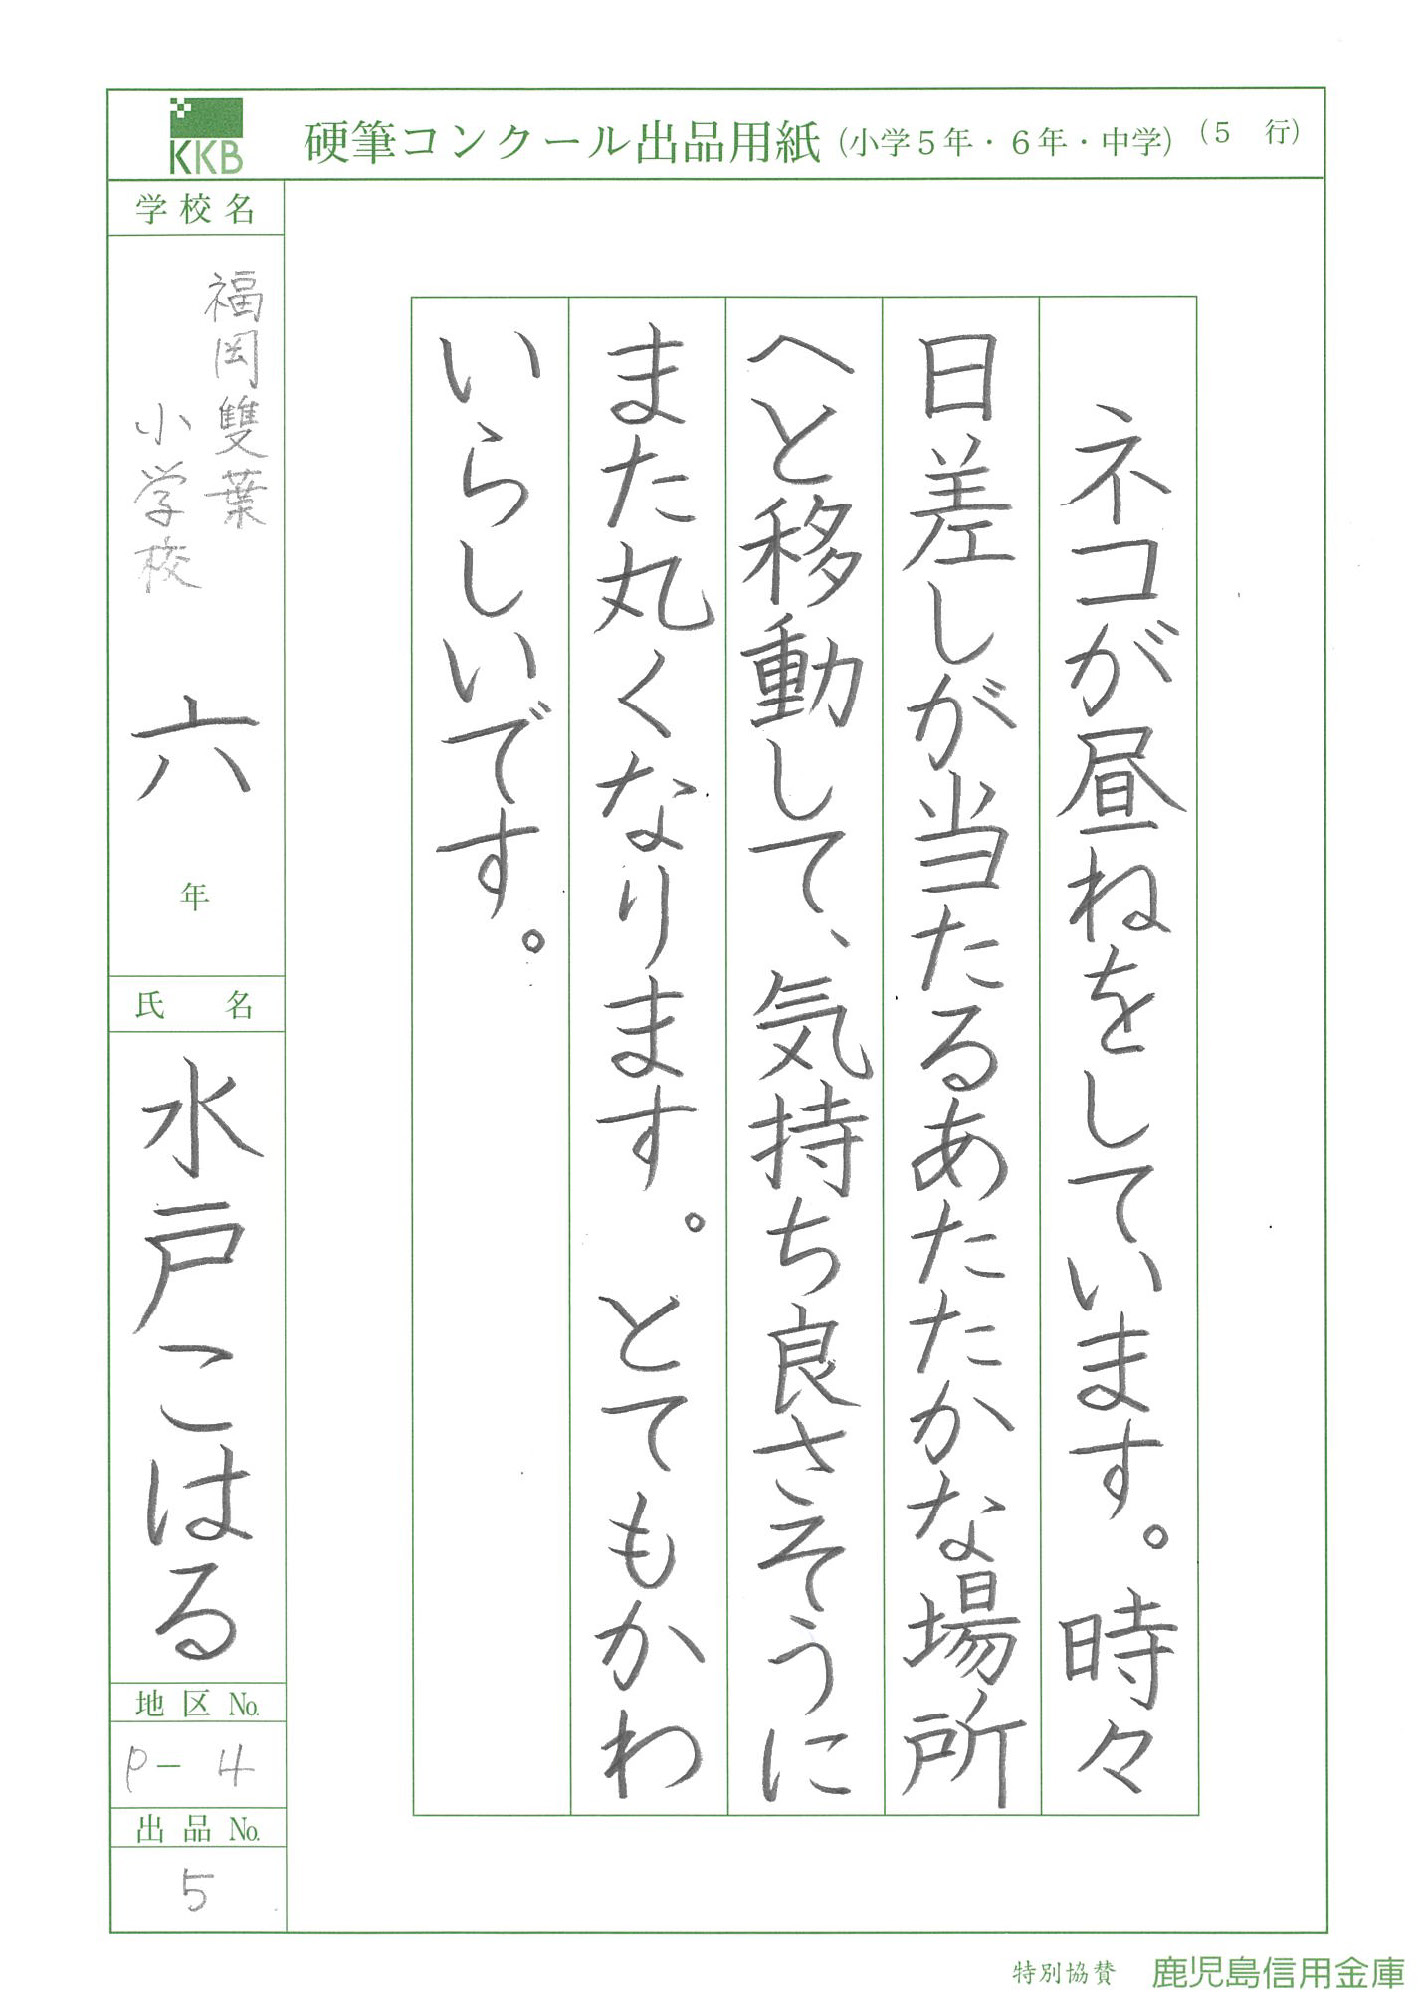 KKB
硬筆コンクール出品用紙(小学5年・6年・中学)(5 行)
ネコが昼ねをしています。時々
日差しが当たるあたたかな場所
へと移動して、気持ち良さそうに
また丸くなります。とてもかわ
いらしいです。
学校名
福岡雙葉
小学校
六
年
氏 名
水戸こはる
地区 No.
P-4
出品 No.
5
特別協賛 鹿児島信用金庫